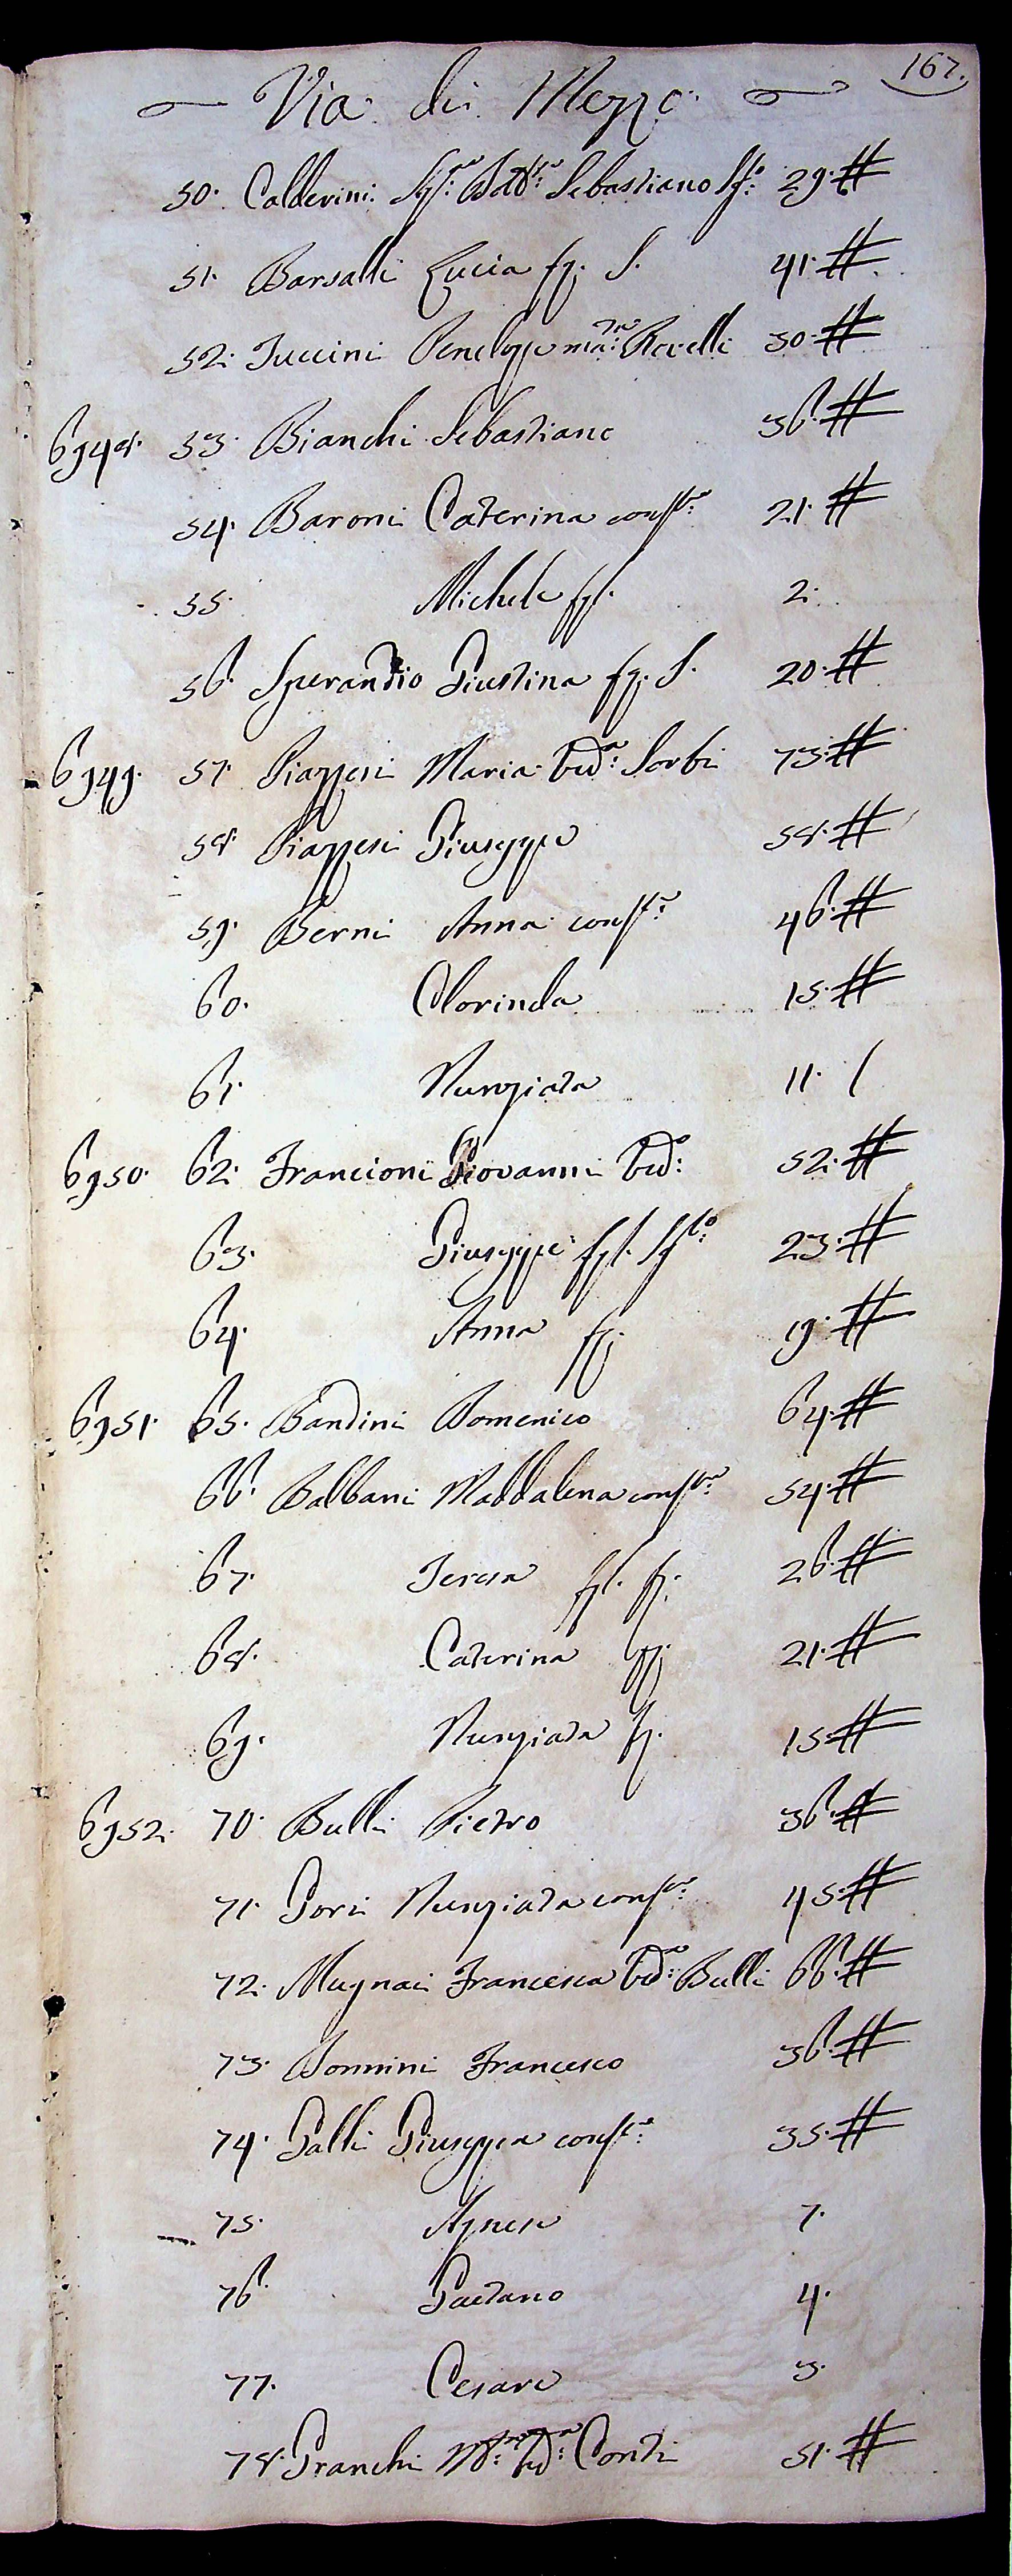 167.
Via di Mezzo
50. Calderini Sig.re Dott.re Sebastiano 29 #
51. Barsalli Lucia fz. S. 41. #
52. Juccini Penelope Rovelli 30 #
6948. 53. Bianchi Sebastiano 36. #
54. Baroni Caterina cons.te 21. #
55. Michele fgl. 2.
56. Sperandio Giustina fz. S. 20. #
6949. 57. Piazzesi Maria Ved.a Sorbi 73. #
58. Piazzesi Giuseppe 58. #
59. Berni Anna cons.te 46. #
60. Clorinda 15. #
61. Nunziata 11. /
6950. 62. Francioni Giovanni Ved.o 52. #
63. Giuseppe fgl. Sg.lo 23. #
64. Anna fz. 19. #
6951. 65. Bandini Domenico 64. #
66. Balbani Maddalena cons.te 54. #
67. Teresa fgl. fz. 26. #
68. Caterina fz. 21. #
69. Nunziata fz. 15. #
6952. 70. Bulli Pietro 36. #
71. Gori Nunziata cons.te 45. #
72. Mugnai Francesca Ved.a Bulli 66. #
73. Sonnini Francesco 36. #
74. Galli Giuseppa cons.te 35. #
75. Agnese 7.
76. Gaetano 4.
77. Cesare 3.
78. Granchi M.a Ved.a Conti 51. #